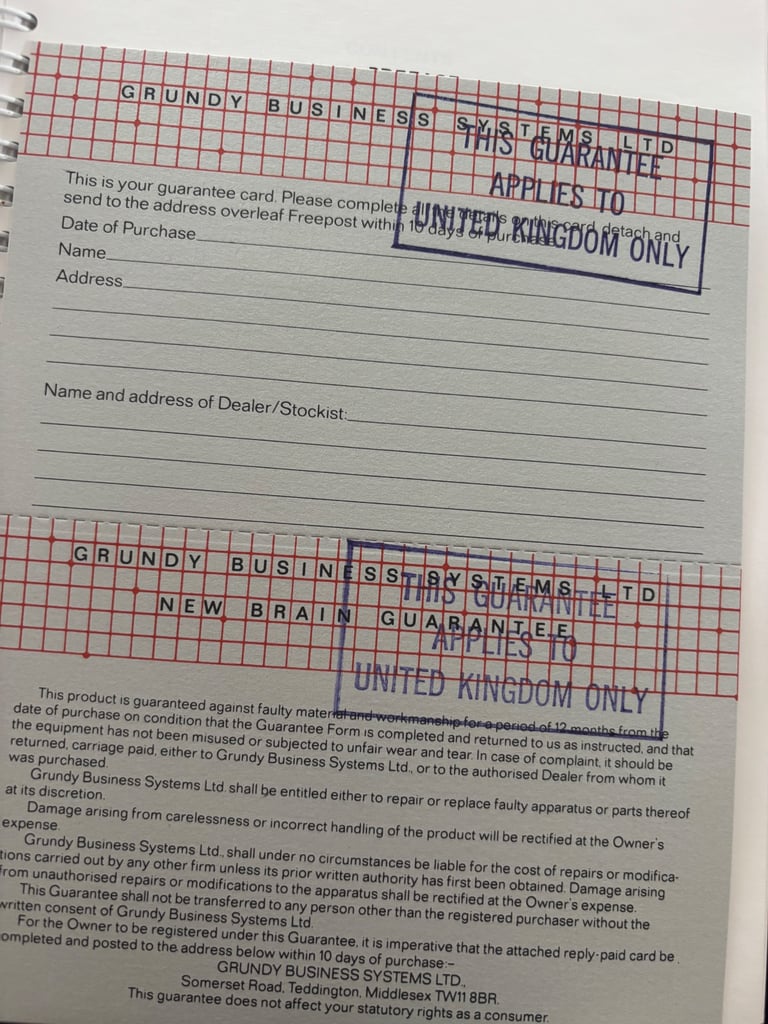 GRUNDY BUSINESS SYSTEMS LTD
THIS GUARANTEE
APPLIES TO
UNITED KINGDOM ONLY
This is your guarantee card. Please complete all the details on this card, detach and
send to the address overleaf Freepost within 10 days of purchase.
Date of Purchase
Name
Address
Name and address of Dealer/Stockist:
GRUNDY BUSINESS SYSTEMS LTD
NEW BRAIN GUARANTEE
THIS GUARANTEE
APPLIES TO
UNITED KINGDOM ONLY
This product is guaranteed against faulty material and workmanship for a period of 12 months from the
date of purchase on condition that the Guarantee Form is completed and returned to us as instructed, and that
the equipment has not been misused or subjected to unfair wear and tear. In case of complaint, it should be
returned, carriage paid, either to Grundy Business Systems Ltd., or to the authorised Dealer from whom it
was purchased.
Grundy Business Systems Ltd. shall be entitled either to repair or replace faulty apparatus or parts thereof
at its discretion.
Damage arising from carelessness or incorrect handling of the product will be rectified at the Owner's
expense.
Grundy Business Systems Ltd., shall under no circumstances be liable for the cost of repairs or modifica-
tions carried out by any other firm unless its prior written authority has first been obtained. Damage arising
from unauthorised repairs or modifications to the apparatus shall be rectified at the Owner's expense.
This Guarantee shall not be transferred to any person other than the registered purchaser without the
written consent of Grundy Business Systems Ltd.
For the Owner to be registered under this Guarantee, it is imperative that the attached reply-paid card be
completed and posted to the address below within 10 days of purchase:–
GRUNDY BUSINESS SYSTEMS LTD.,
Somerset Road, Teddington, Middlesex TW11 8BR.
This guarantee does not affect your statutory rights as a consumer.